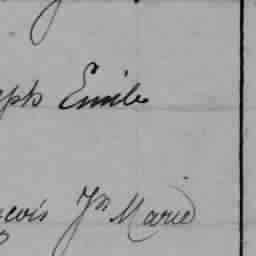 eph Emile
nçois Jn Marie